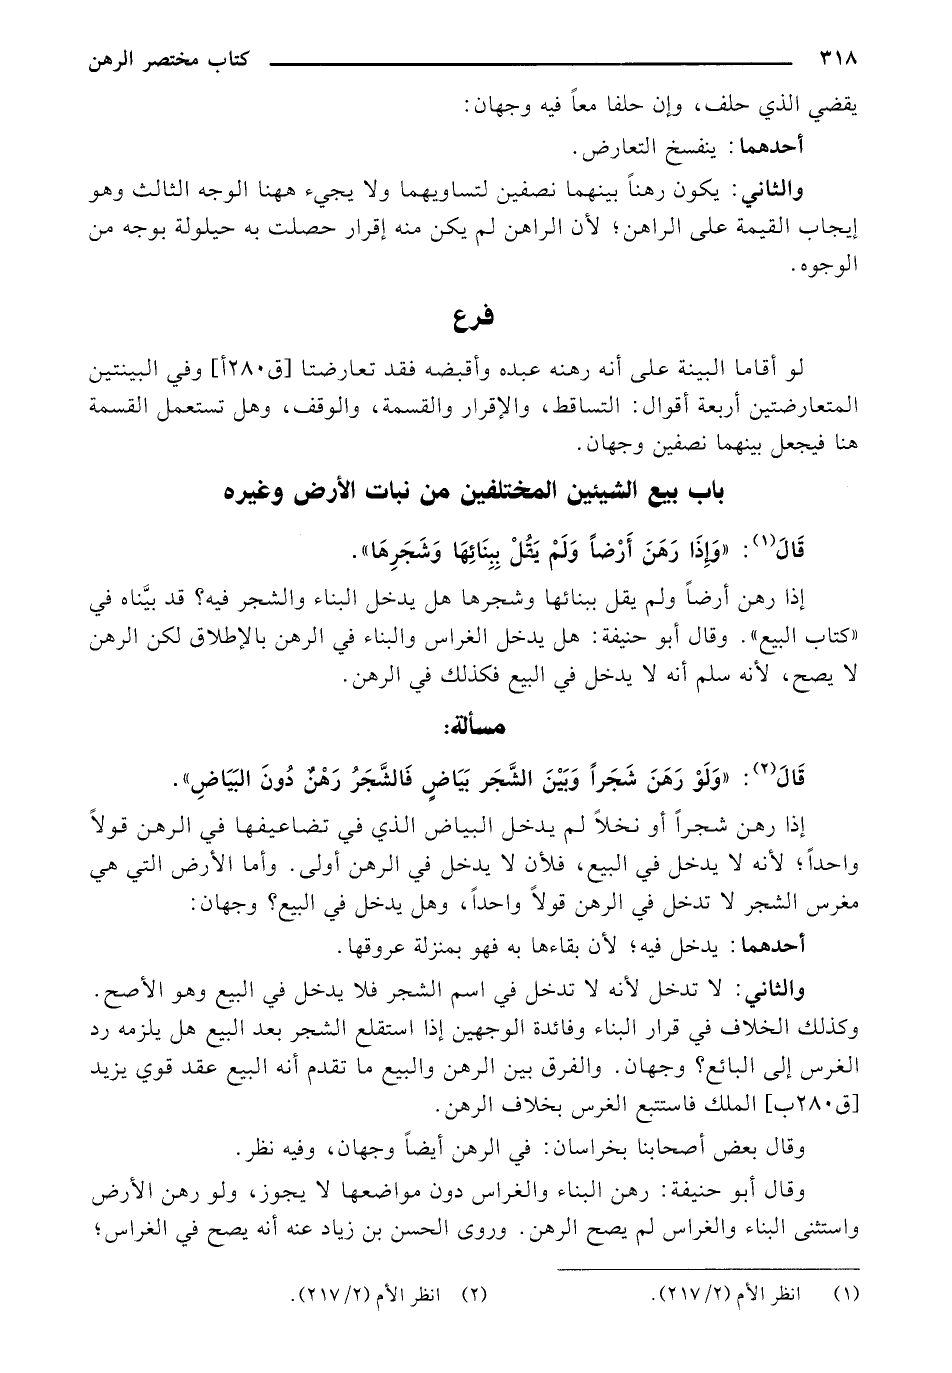 ٣١٨ كتاب مختصر الرهن
يقضي الذي حلف، وإن حلفا معاً فيه وجهان:
أحدهما: ينفسخ التعارض.
والثاني: يكون رهناً بينهما نصفين لتساويهما ولا يجيء ههنا الوجه الثالث وهو
إيجاب القيمة على الراهن؛ لأن الراهن لم يكن منه إقرار حصلت به حيلولة بوجه من
الوجوه.
فرع
لو أقاما البينة على أنه رهنه عبده وأقبضه فقد تعارضتا [ق٢٨٠أ] وفي البينتين
المتعارضتين أربعة أقوال: التساقط، والإقرار والقسمة، والوقف، وهل تستعمل القسمة
هنا فيجعل بينهما نصفين وجهان.
باب بيع الشيئين المختلفين من نبات الأرض وغيره
قَالَ(١): «وَإِذَا رَهَنَ أَرْضاً وَلَمْ يَقُلْ بِبِنَائِهَا وَشَجَرِهَا».
إذا رهن أرضاً ولم يقل ببنائها وشجرها هل يدخل البناء والشجر فيه؟ قد بيَّناه في
«كتاب البيع». وقال أبو حنيفة: هل يدخل الغراس والبناء في الرهن بالإطلاق لكن الرهن
لا يصح، لأنه سلم أنه لا يدخل في البيع فكذلك في الرهن.
مسألة:
قَالَ(٢): «وَلَوْ رَهَنَ شَجَراً وَبَيْنَ الشَّجَرِ بَيَاضٍ فَالشَّجَرُ رَهْنٌ دُونَ البَيَاضِ».
إذا رهن شجراً أو نخلاً لم يدخل البياض الذي في تضاعيفها في الرهن قولاً
واحداً؛ لأنه لا يدخل في البيع، فلأن لا يدخل في الرهن أولى. وأما الأرض التي هي
مغرس الشجر لا تدخل في الرهن قولاً واحداً، وهل يدخل في البيع؟ وجهان:
أحدهما: يدخل فيه؛ لأن بقاءها به فهو بمنزلة عروقها.
والثاني: لا تدخل لأنه لا تدخل في اسم الشجر فلا يدخل في البيع وهو الأصح.
وكذلك الخلاف في قرار البناء وفائدة الوجهين إذا استقلع الشجر بعد البيع هل يلزمه رد
الغرس إلى البائع؟ وجهان. والفرق بين الرهن والبيع ما تقدم أنه البيع عقد قوي يزيد
[ق٢٨٠ب] الملك فاستتبع الغرس بخلاف الرهن.
وقال بعض أصحابنا بخراسان: في الرهن أيضاً وجهان، وفيه نظر.
وقال أبو حنيفة: رهن البناء والغراس دون مواضعها لا يجوز، ولو رهن الأرض
واستثنى البناء والغراس لم يصح الرهن. وروى الحسن بن زياد عنه أنه يصح في الغراس؛
(١) انظر الأم (٢١٧/٢). (٢) انظر الأم (٢١٧/٢).